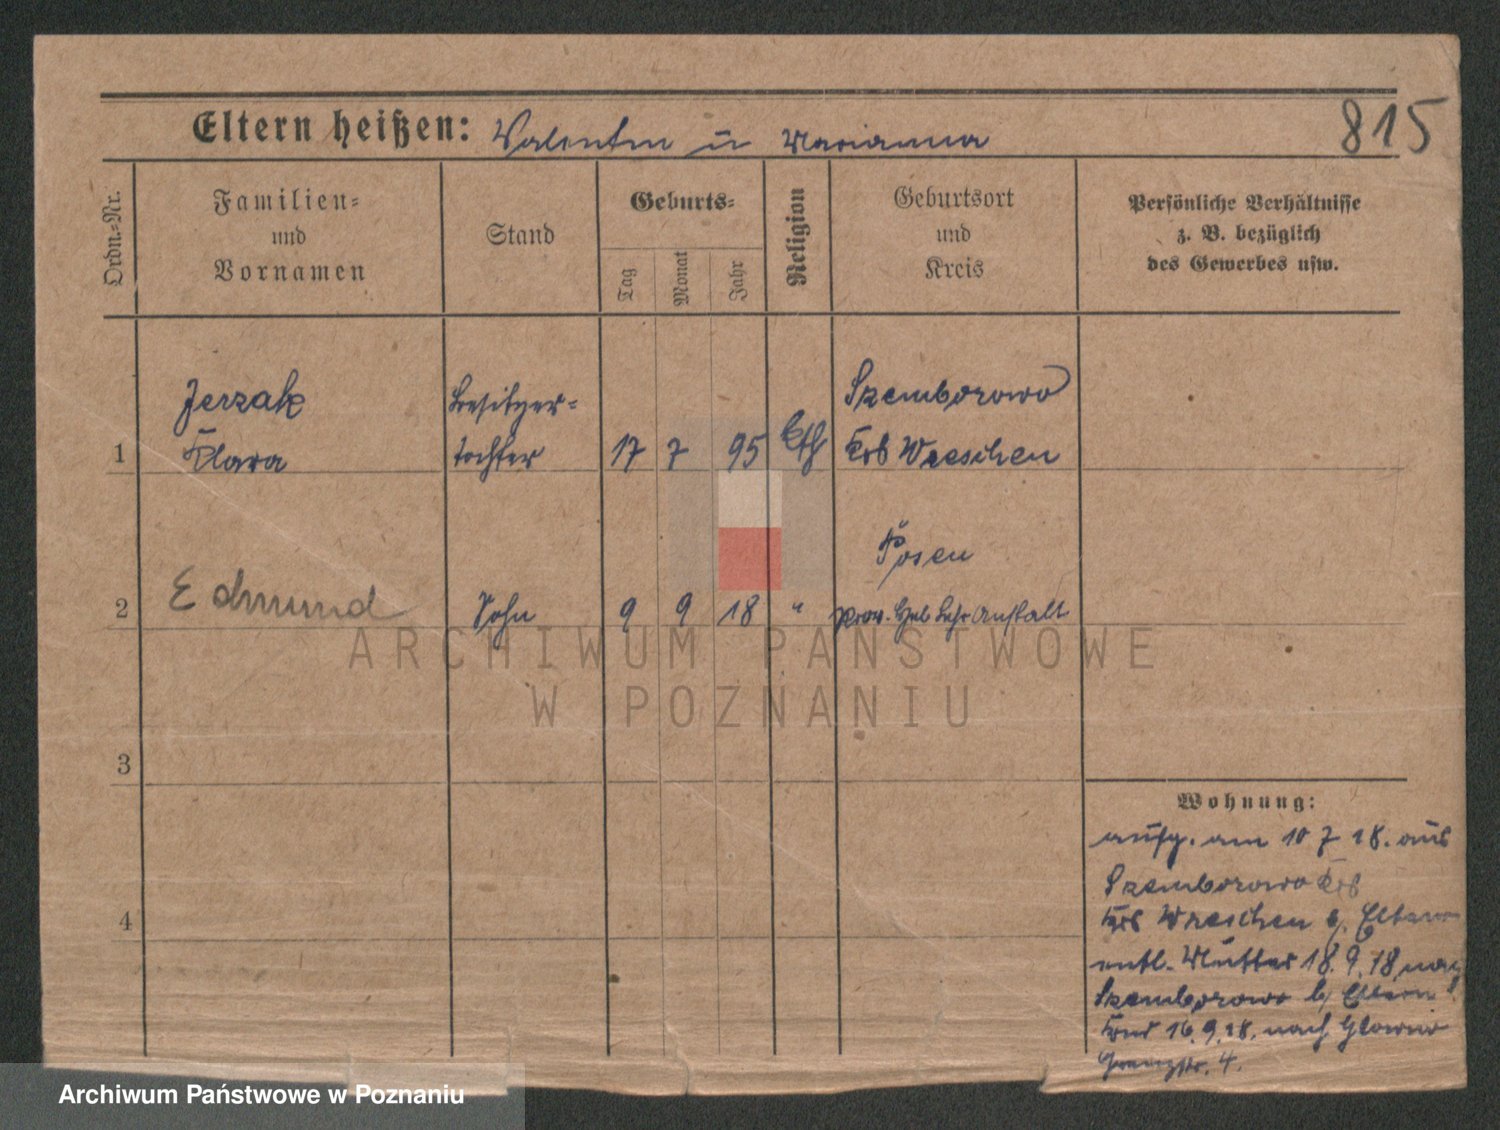 Eltern heißen: Valentin u Marianna
815
Ordn.-Nr.
Familien-
und
Vornamen
Stand
Geburts-
Tag
Monat
Jahr
Religion
Geburtsort
und
Kreis
Persönliche Verhältnisse
z. B. bezüglich
des Gewerbes usw.
Jerzak
Besitzer-
Szemborowo
1 Klara tochter 17 7 95 kth Krs Wreschen
Posen
2 Edmund Sohn 9 9 18 " prov. Heb Lehr Anstalt
3
4
Wohnung:
aufg. am 10 7 18. aus
Szemborowo Krs
Krs Wreschen b/ Eltern
entl. Mutter 18.9.18 nach
Szemborowo b/ Eltern
Kind 16.9.18. nach Glowno
4.
ARCHIWUM PAŃSTWOWE
W POZNANIU
Archiwum Państwowe w Poznaniu